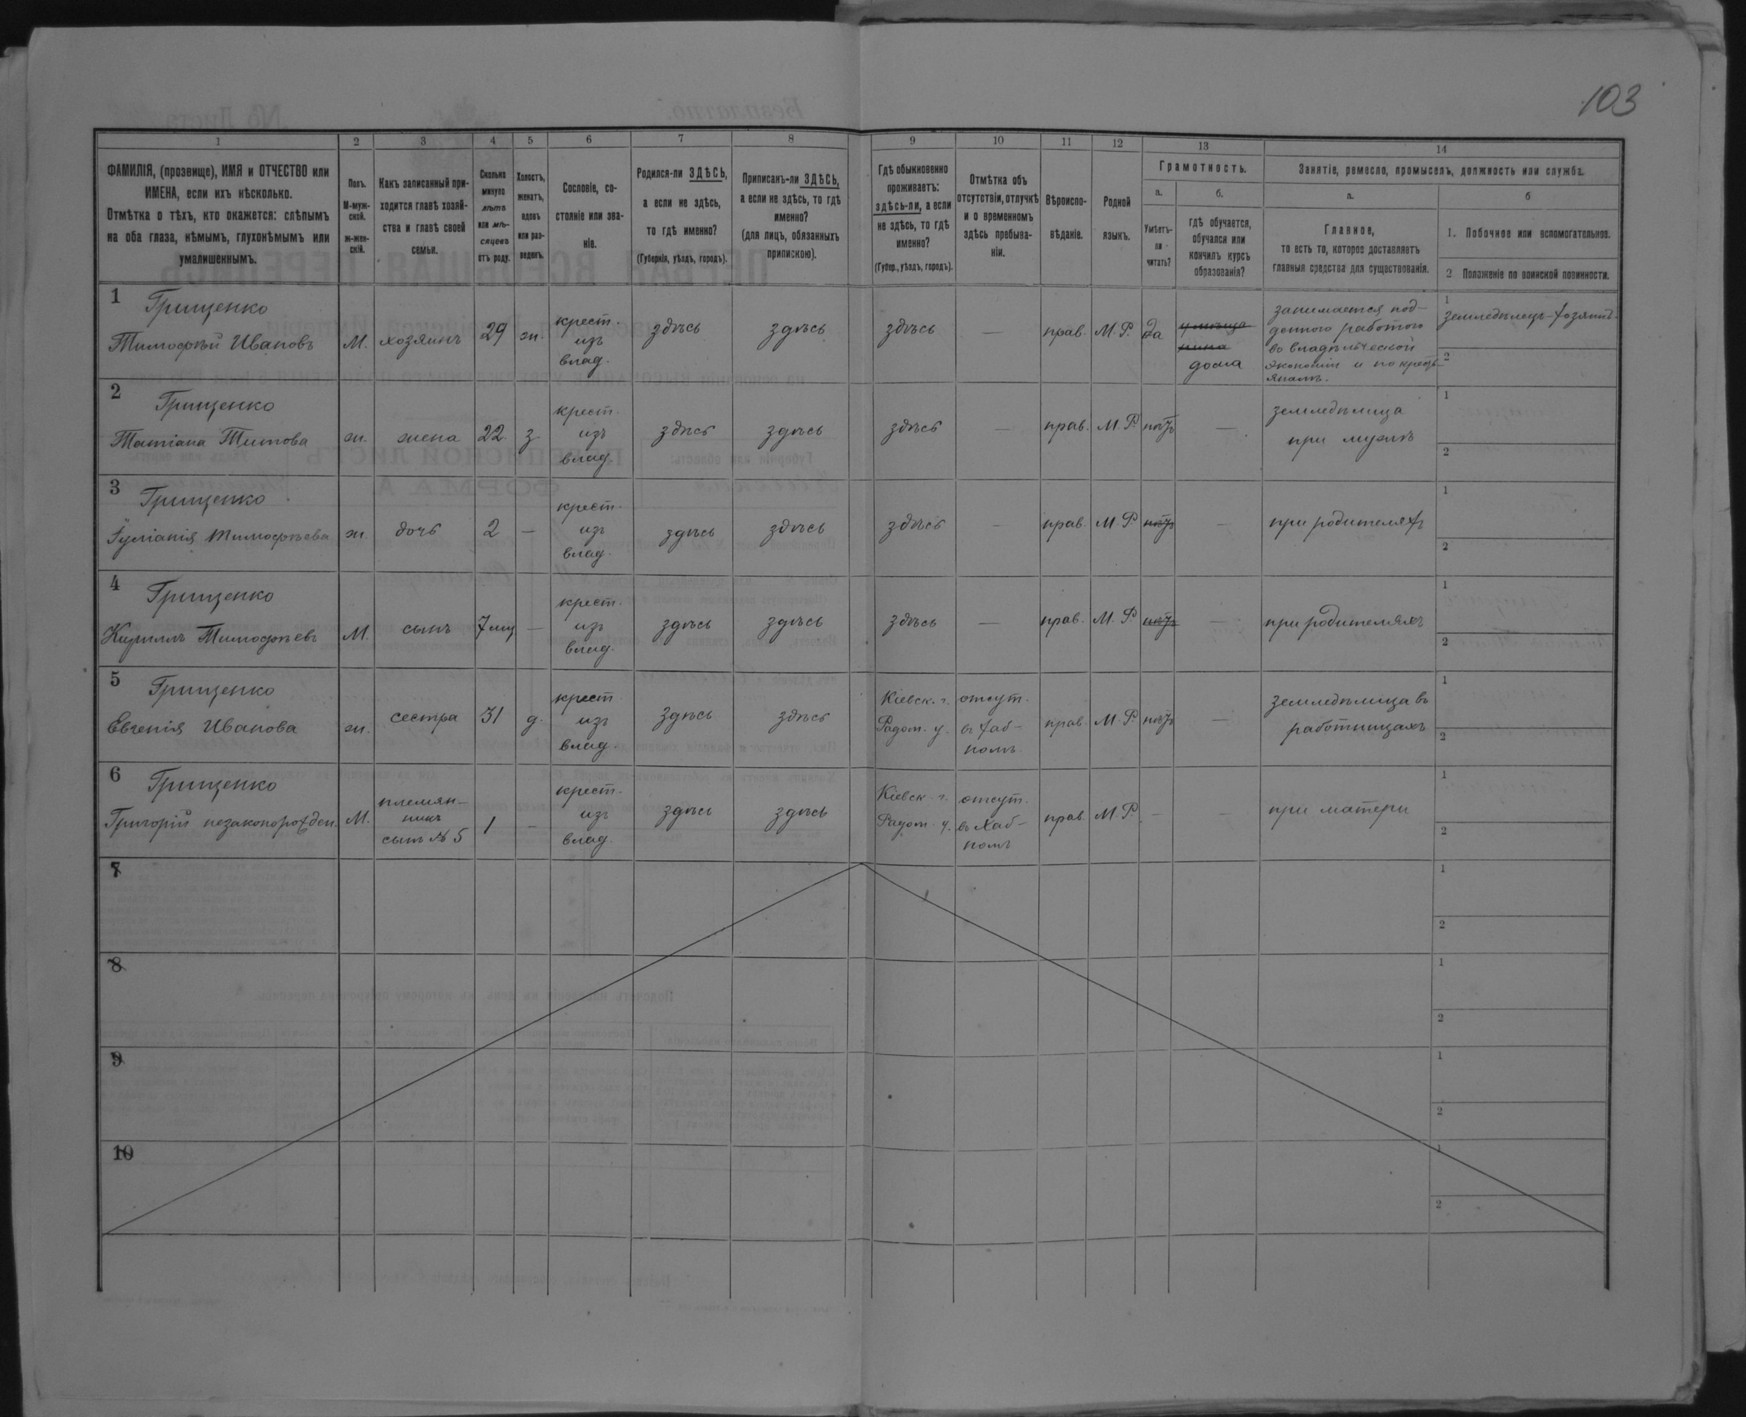 103
1 2 3 4 5 6 7 8 9 10 11 12 13 14
ФАМИЛІЯ, (прозвище), ИМЯ и ОТЧЕСТВО или
ИМЕНА, если ихъ нѣсколько.
Отмѣтка о тѣхъ, кто окажется: слѣпымъ
на оба глаза, нѣмымъ, глухонѣмымъ или
умалишеннымъ.
Полъ.
М-муж-
ской.
ж-жен-
скій.
Какъ записанный при-
ходится главѣ хозяй-
ства и главѣ своей
семьи.
Сколько
минуло
лѣтъ
или мѣ-
сяцевъ
отъ роду.
Холостъ,
женатъ,
вдовъ
или раз-
веденъ.
Сословіе, со-
стояніе или зва-
ніе.
Родился-ли ЗДѢСЬ,
а если не здѣсь,
то гдѣ именно?
(Губернія, уѣздъ, городъ).
Приписанъ-ли ЗДѢСЬ,
а если не здѣсь, то гдѣ
именно?
(для лицъ, обязанныхъ
припискою).
Гдѣ обыкновенно
проживаетъ:
здѣсь-ли, а если
не здѣсь, то гдѣ
именно?
(Губер., уѣздъ, городъ).
Отмѣтка объ
отсутствіи, отлучкѣ
и о временномъ
здѣсь пребыва-
ніи.
Вѣроиспо-
вѣданіе.
Родной
языкъ.
Грамотность.
а.
Умѣетъ-
ли
читать?
б.
гдѣ обучается,
обучался или
кончилъ курсъ
образованія?
Занятіе, ремесло, промыселъ, должность или служба.
а.
Главное,
то есть то, которое доставляетъ
главныя средства для существованія.
б
1. Побочное или вспомогательное.
2 Положеніе по воинской повинности.
1 Грищенко
Тимофѣй Ивановъ М. хозяинъ 29 ж. крест. изъ влад. здѣсь здѣсь здѣсь — прав. М. Р. да
дома
занимается под-
доннаго работою
во владѣльческой
экономіи и по кресть-
янамъ.
1 земледѣлецъ-хозяинъ
2
2 Грищенко
Татіана Титова ж. жена 22 з крест. изъ влад. здѣсь здѣсь здѣсь — прав. М. Р. нѣтъ —
земледѣлица
при мужѣ
1
2
3 Грищенко
Іуліанія Тимофѣева ж. дочь 2 — крест. изъ влад. здѣсь здѣсь здѣсь — прав. М. Р. нѣтъ — при родителяхъ
1
2
4 Грищенко
Кириллъ Тимофѣевъ М. сынъ 7 мц — крест. изъ влад. здѣсь здѣсь здѣсь — прав. М. Р. нѣтъ — при родителяхъ
1
2
5 Грищенко
Евгенія Иванова ж. сестра 31 д. крест изъ влад. здѣсь здѣсь Кіевск. г. Радом. у. отсут. въ Хаб-номъ прав. М. Р нѣтъ —
земледѣлица въ
работницахъ
1
2
6 Грищенко
Григорій незаконорожден. М. племян-
никъ
сынъ № 5 1 — крест. изъ влад. здѣсь здѣсь Кіевск. г. Радом. у. отсут. въ Хаб-номъ прав. М. Р. — — при матери
1
2
7
1
2
8
1
2
9
1
2
10
1
2